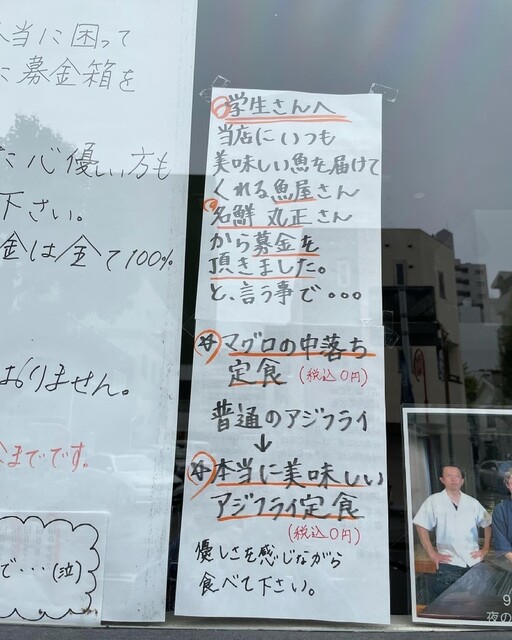 本当に困って
に募金箱を
た心優しい方も
下さい。
金は全て100%
はおりません。
までです。
で・・・(泣)
学生さんへ
当店にいつも
美味しい魚を届けて
くれる魚屋さん
名鮮 丸正さん
から募金を
頂きました。
と、言う事で・・・
マグロの中落ち
定食 (税込0円)
普通のアジフライ
↓
本当に美味しい
アジフライ定食
(税込0円)
優しさを感じながら
食べて下さい。
9
夜の